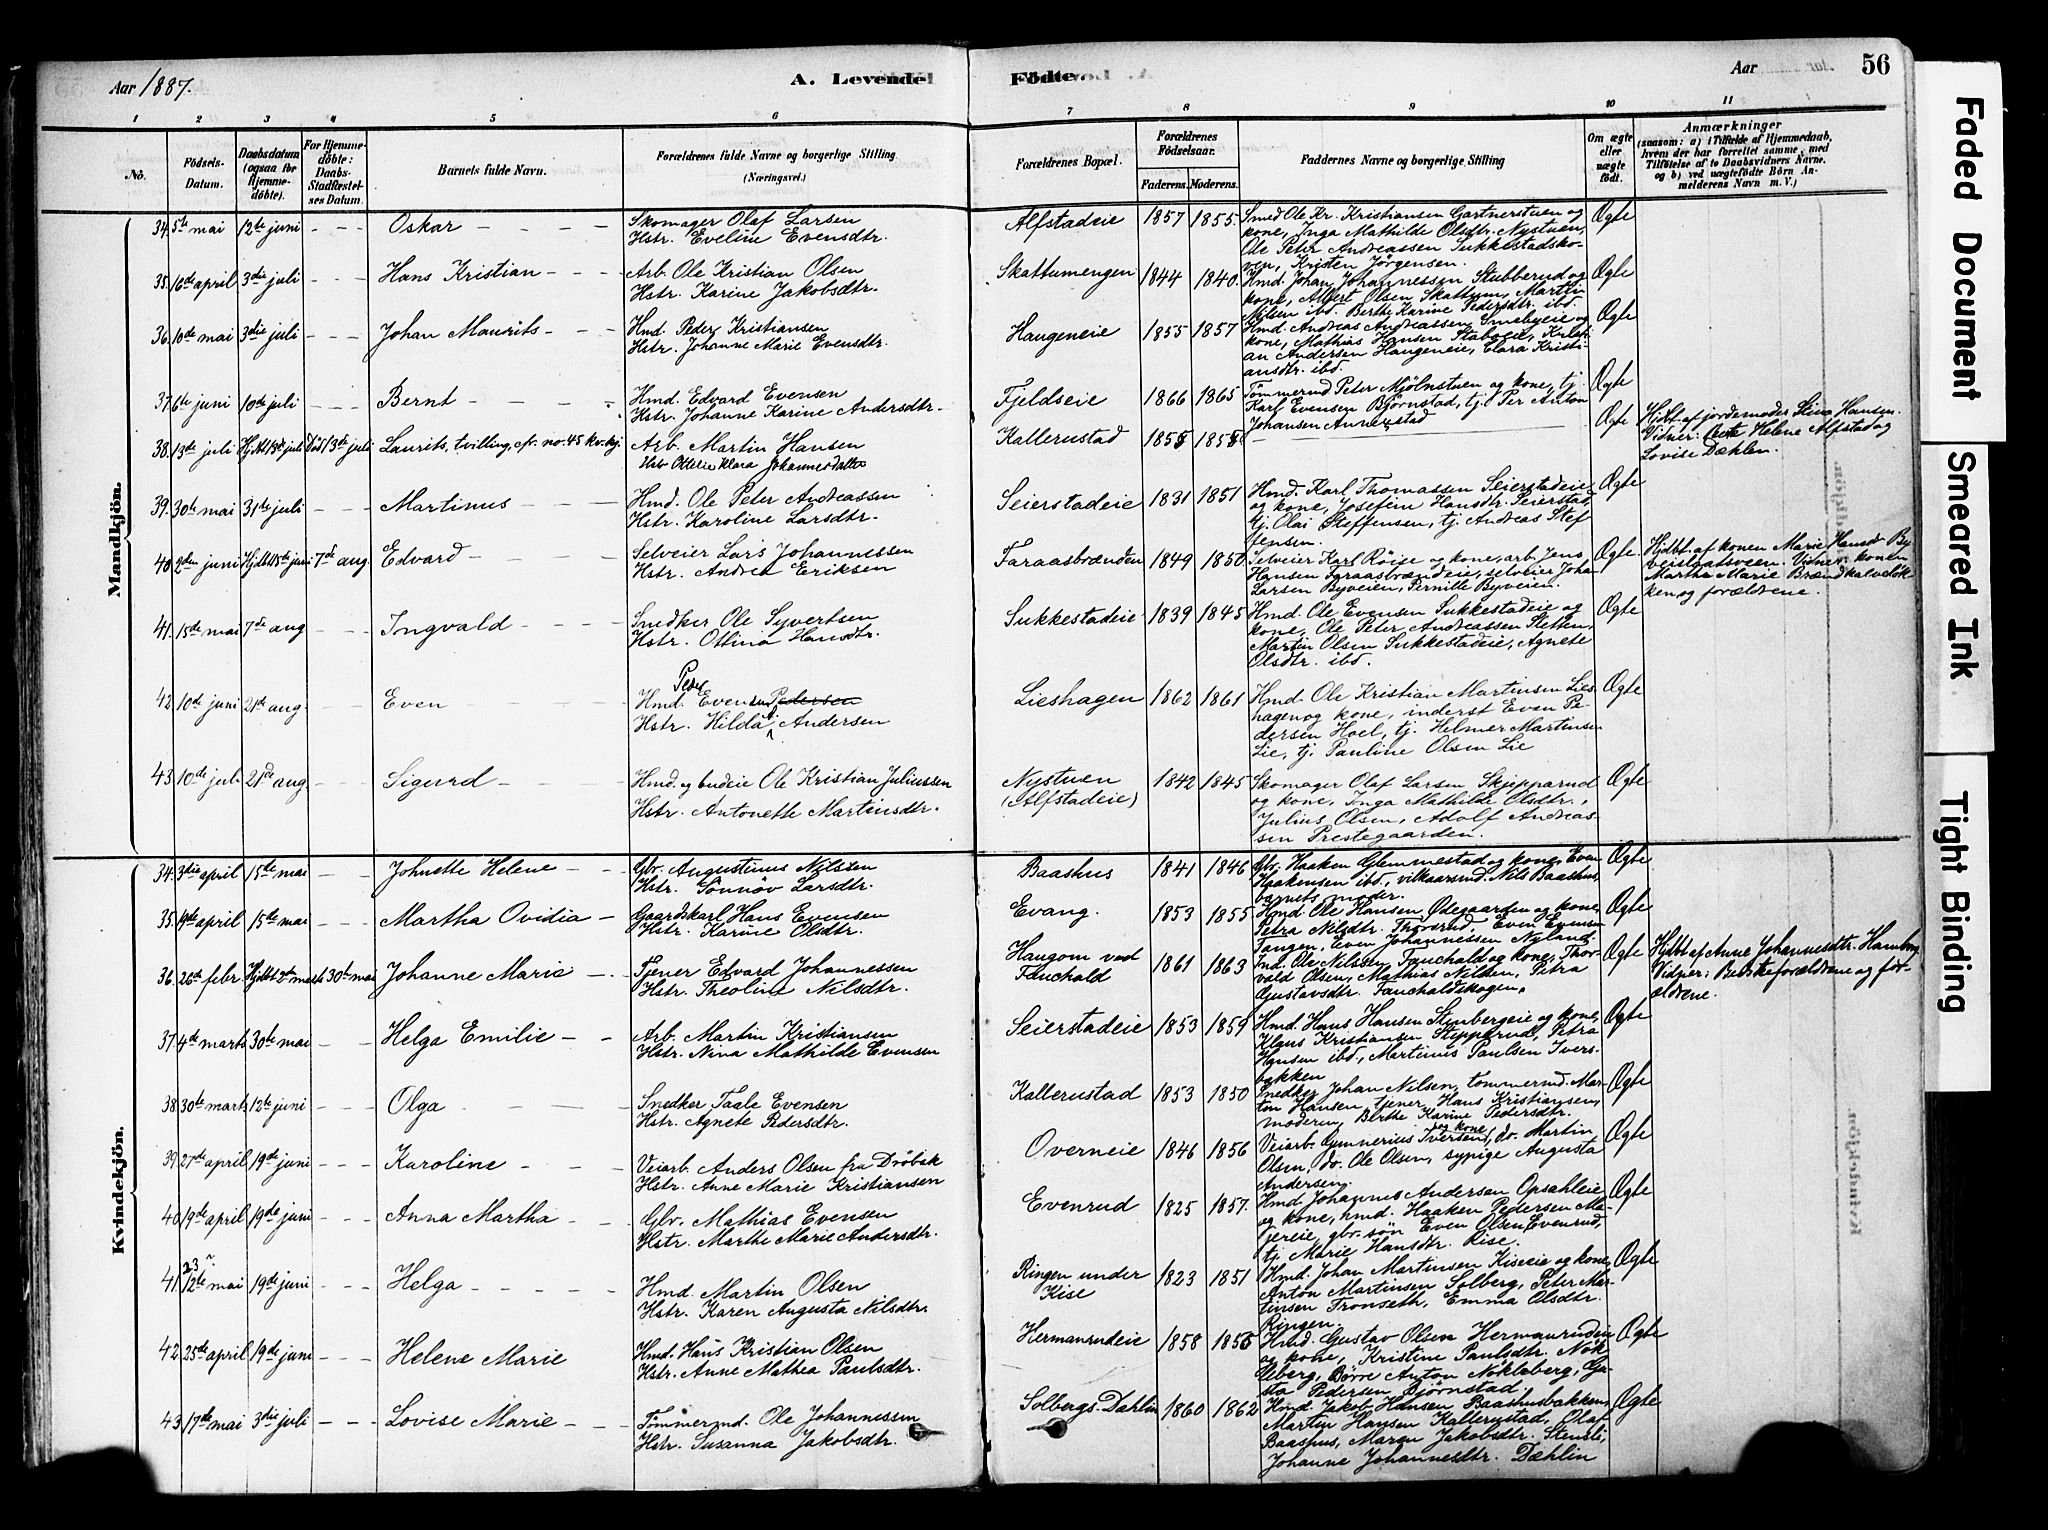 Aar 1887.
A. Levende
Födte.
Aar
56
1 2 3 4 5 6 7 8 9 10 11
No.
Födsels-
Datum.
Daabsdatum
(ogsaa for
Hjemme-
döbte).
For Hjemme-
döbte:
Daabs-
Stadfæstel-
ses Datum.
Barnets fulde Navn.
Forældrenes fulde Navne og borgerlige Stilling
(Næringsvei.)
Forældrenes Bopæl.
Forældrenes
Födselsaar.
Faderens. Moderens.
Faddernes Navne og borgerlige Stilling
Om ægte
eller
uægte
födt.
Anmærkninger
(saasom: a) i Tilfælde af Hjemmedaab,
hvem der har forrettet samme, med
Tilföielse af to Daabsvidners Navne,
og b) ved uægtefödte Börn An-
melderens Navn m. V.)
Mandkjön.
34. 5te mai 12te juni - - - Oskar - - - -
Skomager Olaf Larsen
Hstr. Eveline Evensdtr.
Alfstadeie 1857 1855.
Smed Ole Kr. Kristiansen Gartnerstuen og
kone, Inga Mathilde Olsdtr. Nystuen,
Ole Peter Andreassen Sukkestadsko-
ven, Kristen Jörgensen.
Ægte
35. 16de april 3die juli - - - Hans Kristian - - -
Arb. Ole Kristian Olsen
Hstr. Karine Jakobsdtr.
Skattumengen 1844 1840.
Hmd. Johan Johannessen Stubberud og
kone, Albert Olsen Skattum, Martin
Nilsen ibd. Berthe Karine Pedersdtr. ibd.
Ægte
36. 10de mai 3die juli - - - Johan Maurits - - -
Hmd. Peder Kristiansen
Hstr. Johanne Marie Evensdtr.
Haugeneie 1855 1857
Hmd. Andreas Andreassen Smebyeie og
kone, Mathias Hansen Stabyeie, Kristi-
an Andersen Haugeneie, Clara Kristi-
ansdtr. ibd.
Ægte
37. 6te juni 10de juli - - - Bernt - - - -
Hmd. Edvard Evensen
Hstr. Johanne Karine Andersdtr.
Fjeldseie 1866 1865
Tömmermd Peter Mjölnstuen og kone, tj.
Karl Evensen Björnstad, tj. Per Anton
Johansen Annexstad
Ægte
38. 13de juli Hjdbt 13de juli Död 13de juli Laurits, tvilling, cfr. no. 45 kv.kj.
Arb. Martin Hansen
Hstr Ottilie Klara Johannesdatter
Kallerustad 1855 1855
Ægte
Hjdbt. af jordemoder Stina Hansen.
Vidner: Helene Alfstad og
Lovise Dæhlen.
39. 30te mai 31te juli - - - Martinus - - -
Hmd. Ole Peter Andreassen
Hstr. Karoline Larsdtr.
Seierstadeie 1831 1851
Hmd. Karl Thomassen Seierstadeie
og kone, Josefine Hansdtr. Seierstad,
tj. Olai Steffensen, tj. Andreas Stef
fensen.
Ægte
40. 2den juni Hjdbt 18de juni 7de aug. Edvard - - - -
Selveier Lars Johannessen
Hstr. Andrea Eriksen
Faraasbrænden 1849 1850.
Selveier Karl Röise og kone, arb. Jens
Hansen Faraasbrændeie, selveier Johan
Larsen Byveien, Pernille Byveien.
Ægte.
Hjdbt. af konen Marie Hansd By
veislaatsveen. Vidner: konen
Martha Marie Brænd kalvelök-
ken og forældrene.
41. 15de mai 7de aug - - - Ingvald - - - -
Snedker Ole Syvertsen
Hstr. Ottina Hansdtr.
Sukkestadeie 1839 1845
Hmd. Ole Evensen Sukkestadeie og
kone, Ole Peter Andreassen Sletten,
Martin Olsen Sukkestadeie, Agnete
Olsdtr. ibd.
Ægte
42 10de juni 21de aug - - - Even - - - -
Peder
Hmd. Evensen Pedersen
Hstr. Hilda Andersen
Lieshagen 1862 1861
Hmd. Ole Kristian Martinsen Lies
hagen og kone, inderst Even Pe-
dersen Hoel, tj. Helmer Martinsen
Lie, tj. Pauline Olsen Lie
Ægte
43. 10de juli 21de aug - - - Sigurd - - - -
Hmd. og budeie Ole Kristian Juliussen
Hstr. Antonette Martinsdtr.
Nystuen
(Alfstadeie)
1842 1845
Skomager Olaf Larsen Skjepparud
og kone, Inga Mathilde Olsdtr.,
Julius Olsen, Adolf Andreas-
sen Prestegaarden.
Ægte
Kvindekjön.
34. 3die april 15de mai - - - Johnette Helene - -
Gbr. Augustinus Nilsten
Hstr. Sönnöv Larsdtr.
Baashus 1841 1846
Gbr. Haaken Glemmestad og kone, Even
Haakensen ibd., vilkaarsmd. Nils Baashus,
barnets moder.
Ægte
35. 19de april 15de mai - - - Martha Ovidia -
Gaardskarl Hans Evensen
Hstr. Karine Olsdtr.
Evang. 1853 1855
Hmd. Ole Hansen Ødegaarden og kone,
Petra Nilsdtr. Thorsrud, Even Evensen
Tangen, Even Johannessen Nyland.
Ægte
36. 26de febr. Hjdbt 2de marts 30te mai Johanne Marie - -
Tjener Edvard Johannessen
Hstr. Theoline Nilsdtr.
Haugom ved
Fauchald
1861 1863
Ind. Ole Nilssen Fauchald og kone, Thor-
vald Olsen, Mathias Nilsen, Petra
Gustavsdtr. Fauchaldskogen.
Ægte
Hjdbt. af Anne Johannesdtr. Hamborg
Vidner: Bedsteforældrene og for-
ældrene.
37. 4de marts 30te mai - - Helga Emilie - -
Arb. Martin Kristiansen
Hstr. Nina Mathilde Evensen
Seierstadeie 1853 1859
Hmd. Hans Hansen Stenbergeie og kone,
Klaus Kristiansen Stepperud, Petra
Hansen ibd., Martinus Paulsen Ivers-
bakken
Ægte
38. 30te marts 12te juni - - - Olga - - -
Snedker Taale Evensen
Hstr. Agnete Pedersdtr.
Kallerustad 1853 1850
Snedker Johan Nilsen, tömmermd. Mar-
tin Hansen, tjener Hans Kristiansen,
moderen, Birthe Karine Pedersdtr.
Ægte
39. 27de april 19de juni - - - Karoline - - -
Veiarb. Anders Olsen fra Dröbak
Hstr. Anne Marie Kristiansen
Overneie 1846 1856
Veiarb. Gunnerius Iversen og kone, do. Martin
Olsen, do. Ole Olsen, sypige Augusta
Andersen.
Ægte
40 19de april 19de juni - - - Anna Martha - -
Gbr. Mathias Evensen
Hstr. Marthe Marie Andersdtr.
Evenrud 1825 1857.
Hmd. Johannes Andersen Opsahleie
og kone, hmd. Haaken Pedersen Ma-
jereie, gbr. sön Even Olsen Evenrud,
tj. Marie Hansdtr. Rise.
Ægte
41. 23 12te mai 19de juni - - - Helga - - - -
Hmd. Martin Olsen
Hstr. Karen Augusta Nilsdtr.
Ringen under
Kise
1823 1851
Hmd. Johan Martinsen Kiseeie og kone,
Anton Martinsen Solberg, Peter Mar-
tinsen Tronseth, Emma Olsdtr.
Ringen.
Ægte
42 25de april 19de juni - - - Helene Marie
Hmd. Hans Kristian Olsen
Hstr. Anne Mathea Paulsdtr.
Hermanrudeie 1858 1856
Hmd. Gustav Olsen Hermanrudeie
og kone, Kristine Paulsdtr. Nök-
leberg, Börre Anton Nökleberg, Gu-
sta Pedersen Björnstad.
Ægte
43 17de mai 3die juli - - Lovise Marie - -
Tömmermd. Ole Johannessen
Hstr. Susanna Jakobsdtr.
Solbergs. Dahlin 1860 1862
Hmd. Jakob Hansen Baashusbakken,
Martin Hansen Kallerustad, Olaf
Baashus, Maren Jakobsdtr. Stensli,
Johanne Johannesdtr. Dæhlin
Ægte
Faded Document
Smeared Ink
Tight Binding